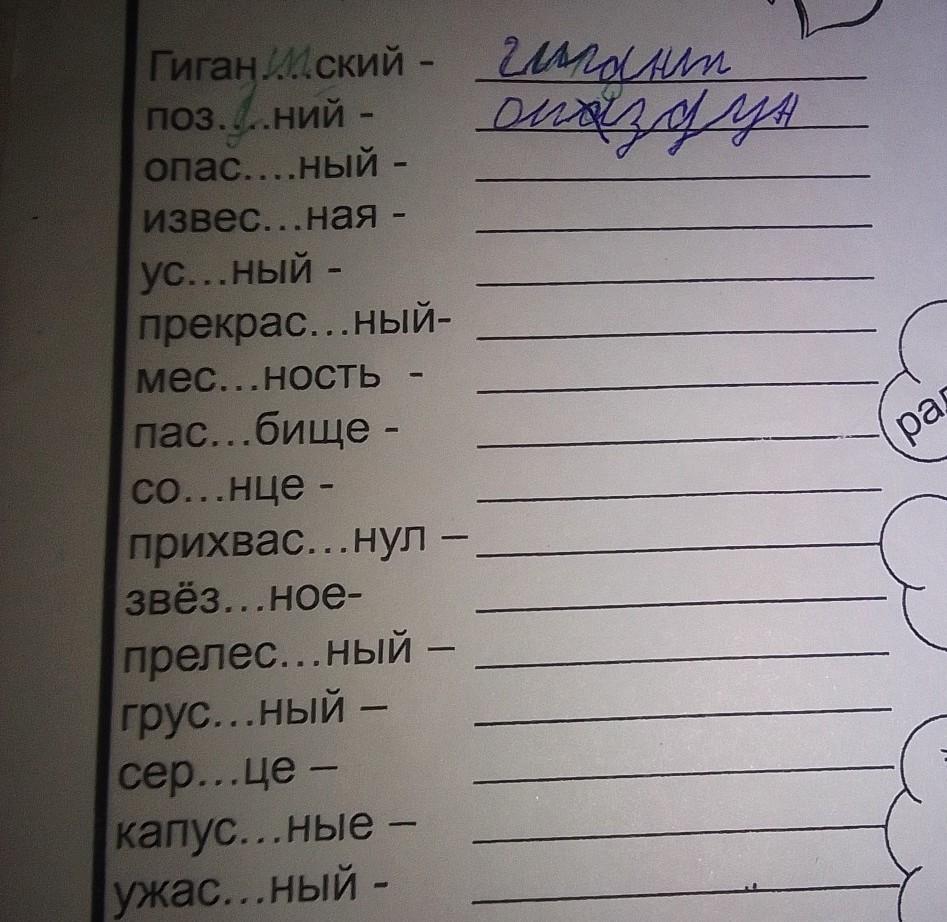 Гиган..т..ский - гигант
поз..д..ний - опаздун
опас....ный -
извес...ная -
ус...ный -
прекрас...ный-
мес...ность -
пас...бище -
со...нце -
прихвас...нул –
звёз...ное-
прелес...ный –
грус...ный –
сер...це –
капус...ные –
ужас...ный -